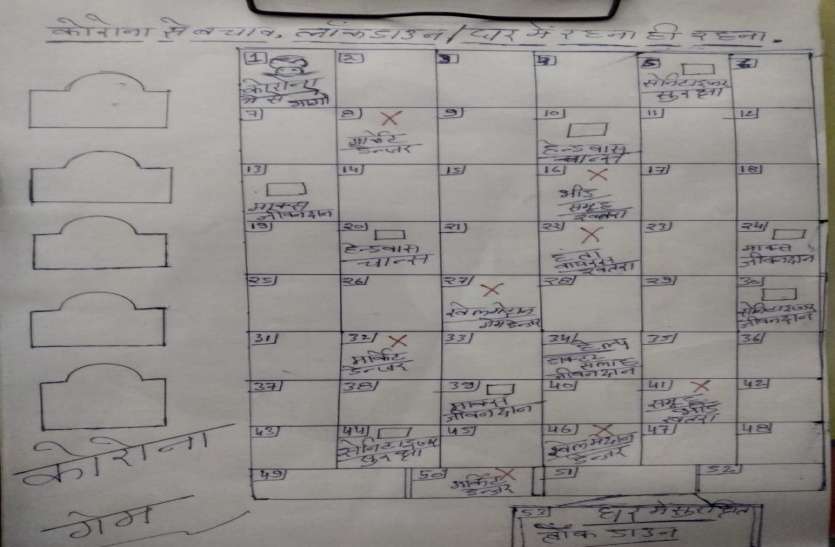 कोरोना से बचाव, लॉकडाउन/घर में रहना ही रहना.
1 2 3 4 5 6
कोरोना
सेनिटाइजर
सुरक्षा
7 8 9 10 11 12
मार्केट
डेन्जर
हेन्डवास
चान्स
13 14 15 16 17 18
मास्क
जीवनदान
भीड
समूह
खतरा
19 20 21 22 23 24
हेन्डवास
चान्स
हन्ता
वायरस
खतरा
मास्क
जीवनदान
25 26 27 28 29 30
खेल मैदान
डेन्जर
सेनिटाइजर
जीवनदान
31 32 33 34 35 36
मार्केट
डेन्जर
हेल्प
डाक्टर
सलाह
जीवनदान
37 38 39 40 41 42
मास्क
जीवनदान
समूह
भीड
खतरा
43 44 45 46 47 48
सेनिटाइजर
सुरक्षा
खेल मैदान
डेन्जर
49 50 51 52
मार्केट
डेन्जर
53 घर में सुरक्षित
लॉक डाउन
कोरोना
गेम